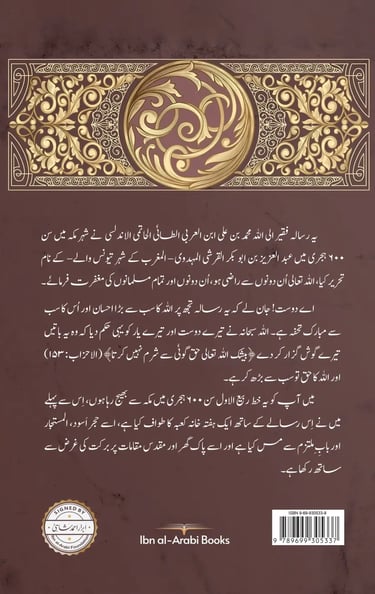 یہ رسالہ فقیر الی اللہ محمد بن علی ابن العربی الطائی الحاتمی الاندلسی نے شہر مکہ میں سن
۶۰۰ ہجری میں عبد العزیز بن ابو بکر القرشی المہدوی – المغرب کے شہر تیونس والے – کے نام
تحریر کیا، اللہ تعالیٰ اُن دونوں سے راضی ہو، اُن دونوں اور تمام مسلمانوں کی مغفرت فرمائے۔
اے دوست! جان لے کہ یہ رسالہ تجھ پر اللہ کا سب سے بڑا احسان اور اُس کا سب
سے مبارک تحفہ ہے۔ اللہ سبحانہ نے تیرے دوست اور تیرے یار کو یہی حکم دیا کہ وہ یہ باتیں
تیرے گوش گزار کر دے ﴿بیشک اللہ تعالیٰ حق گوئی سے شرم نہیں کرتا﴾ (الاحزاب: ۵۳)
اور اللہ کا حق تو سب سے بڑھ کر ہے۔
میں آپ کو یہ خط ربیع الاول سن ۶۰۰ ہجری میں مکہ سے بھیج رہا ہوں، اس سے پہلے
میں نے اِس رسالے کے ساتھ ایک ہفتہ خانہ کعبہ کا طواف کیا ہے، اسے حجرِ اَسود، المستجار
اور بابِ ملتزم سے مس کیا ہے اور اسے پاک گھر اور مقدس مقامات پر برکت کی غرض سے
ساتھ رکھا ہے۔
SIGNED BY
ابرار احمد شاہی
Ibn al-Arabi Foundation
Ibn al-Arabi Books
ISBN 9-69-930533-8
9 789699 305337